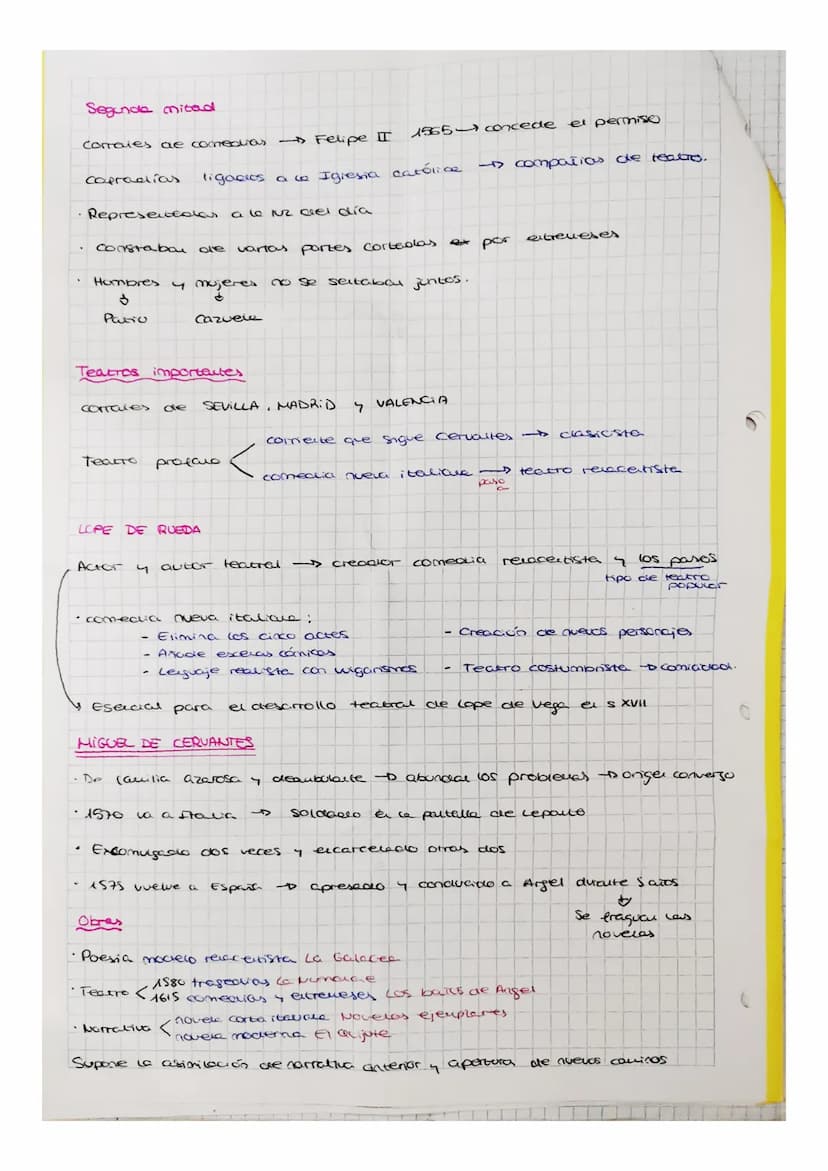 Segunda mitad
Corrales de comedias → Felipe II 1565 → concede el permiso
Cofradías ligadas a la Iglesia católica → compañías de teatro.
· Representadas a la luz del día
· Constaban de varias partes cortadas por entremeses
· Hombres y mujeres no se sentaban juntos.
Patio Cazuela
Teatros importantes
corrales de SEVILLA, MADRID y VALENCIA
corriente que sigue Cervantes → clasicista
Teatro profano
comedia nueva italiana → teatro renacentista
paso a
LOPE DE RUEDA
Actor y autor teatral → creador comedia renacentista y los pasos
tipo de teatro popular
· comedia nueva italiana:
- Elimina los cinco actos - Creación de nuevos personajes
- Añade escenas cómicas
- Lenguaje realista con vulgarismos - Teatro costumbrista → comicidad.
Esencial para el desarrollo teatral de Lope de Vega en s XVII
MIGUEL DE CERVANTES
· De familia azarosa y deambulante → abundan los problemas → origen converso
· 1570 va a Italia → soldado en la batalla de Lepanto
· Excomulgado dos veces y encarcelado otras dos
· 1575 vuelve a España → apresado y conducido a Argel durante 5 años
Se fraguan las novelas
Obras
· Poesía modelo renacentista La Galatea
· Teatro 1580 tragedias La Numancia
1615 comedias y entremeses Los baños de Argel
· Narrativa novela corta italiana Novelas ejemplares
novela moderna El Quijote
Supone la asimilación de narrativa anterior y apertura de nuevos caminos